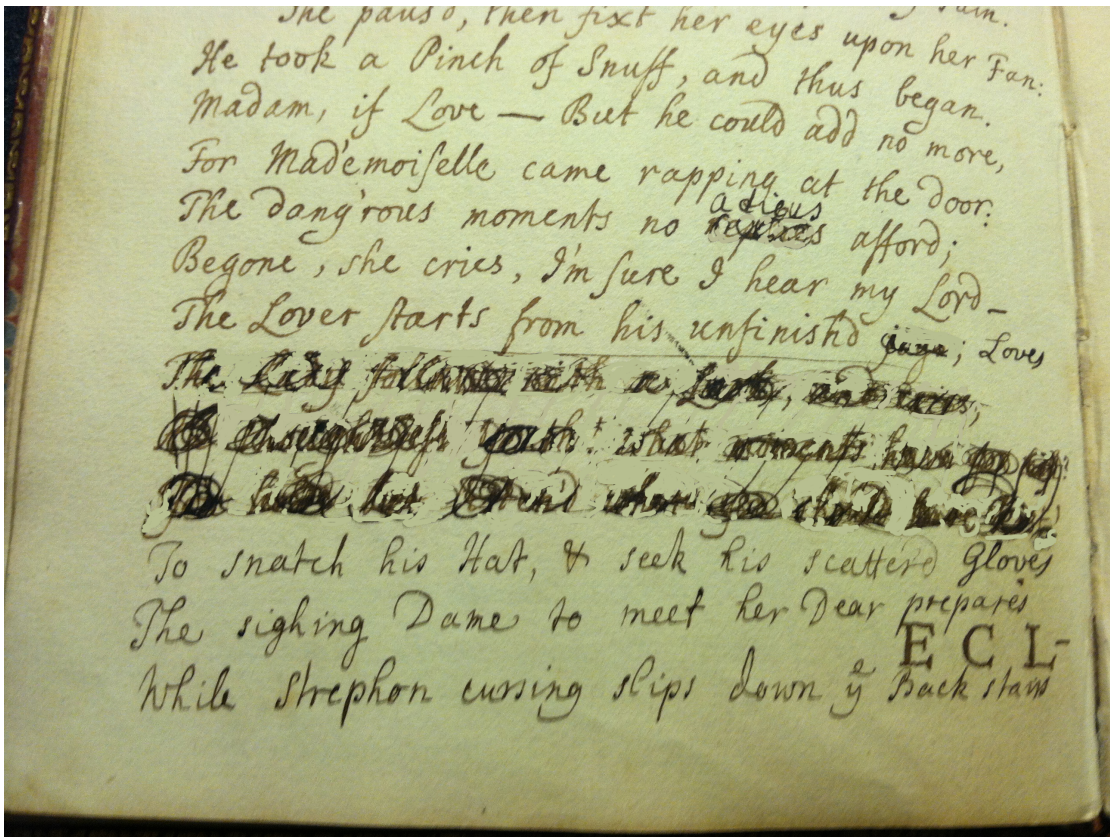 She paus'd, then fixt her eyes upon her Fan:
He took a Pinch of Snuff, and thus began.
Madam, if Love — But he could add no more,
For Mad'emoiselle came rapping at the door.
adieus
The dang'rous moments no afford;
Begone, she cries, I'm sure I hear my Lord–
The Lover starts from his unfinish'd ; Loves
The Lady follows with a, and cries,
youth! what moments have
but what should have
To snatch his Hat, & seek his scatter'd Gloves
The sighing Dame to meet her Dear prepares
E C L-
While Strephon cursing slips down yᵉ Back stairs